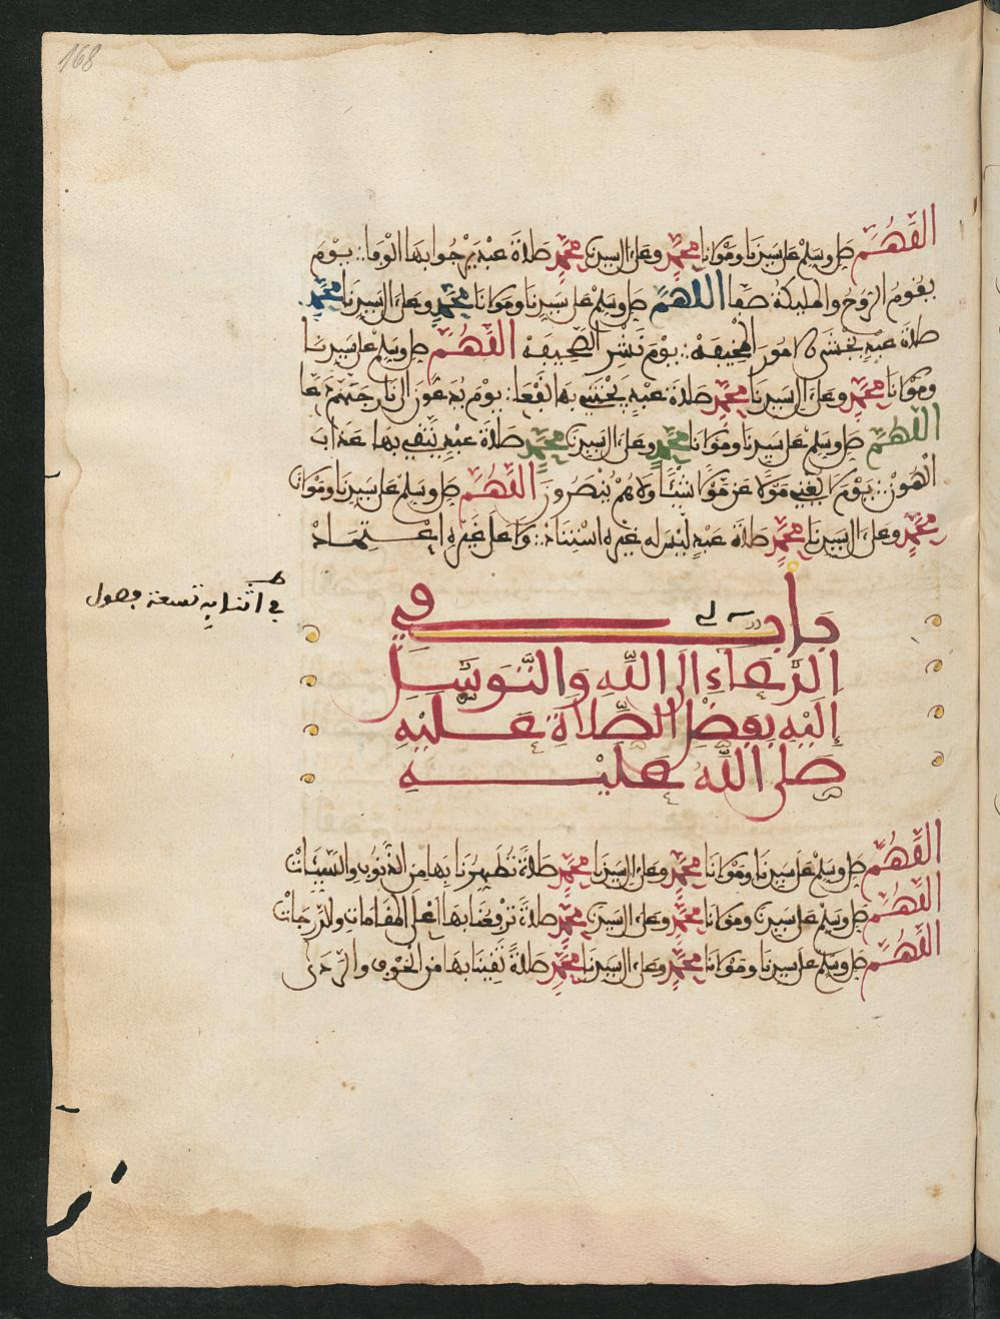 168
اللهم صل وسلم على سيدنا ومولانا محمد وعلى ال سيدنا محمد صلاة عبد يرجوا بها الوفا: يوم
يقوم الروح والمليكة صفا اللهم صل وسلم على سيدنا ومولانا محمد وعلى ال سيدنا محمد
صلاة عبد يخشى لامور المخيفة: يوم نشر الصحيفة اللهم صل وسلم على سيدنا
ومولانا محمد وعلى ال سيدنا محمد صلاة عبد بها نفعا: يوم يدعون الى نار جهنم دعا
اللهم صل وسلم على سيدنا ومولانا محمد وعلى ال سيدنا محمد صلاة عبد يتقي بها عذاب
الهون: يوم لا يغني مولى عن مولى شيئا ولا هم ينصرون اللهم صل وسلم على سيدنا ومولانا
محمد وعلى ال سيدنا محمد صلاة عبد ليس له غيره استناد: ولا على غيره اعتماد
في اثنايه تسعة فصول
باب في
الدعاء الى الله والتوسل
إليه بفضل الصلاة عليه
صلى الله عليه
اللهم صل وسلم على سيدنا ومولانا محمد وعلى ال سيدنا محمد صلاة تطهرنا بها من الذنوب والسيئات
اللهم صل وسلم على سيدنا ومولانا محمد وعلى ال سيدنا محمد صلاة ترفعنا بها اعلى المقامات والدرجات
اللهم صل وسلم على سيدنا ومولانا محمد وعلى ال سيدنا محمد صلاة تقينا بها من الخوف والردى